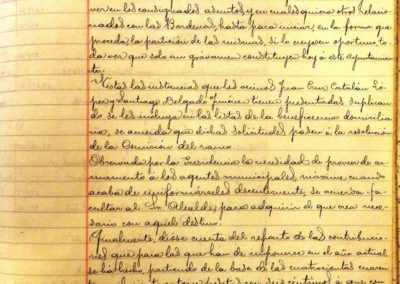 ver en los consignados asuntos y en cualesquiera otros relacio
nados con las Bardenas, hasta para iniciar, en la forma que
proceda, la partición de las mismas, si lo creyesen oportuno, to
da vez que solo un gravamen constituyen hoy a este ayuntamien
to.
Vistas las instancias que los vecinos Juan Cruz Catalán Ló
pez y Santiago Delgado Jiménez tienen presentadas suplican
do se les incluya en las listas de la beneficencia domicilia
ria, se acuerda que dichas solicitudes pasen á la resolución
de la Comisión del ramo.
Observada por la Presidencia la necesidad de proveer de ar
mamento á los agentes municipales, máxime cuando
acaba de uniformárseles decentemente, se acuerda fa
cultar al Sr. Alcalde, para adquirir el que crea nece
sario con aquel destino.
Finalmente, dióse cuenta del reparto de las contribucio
nes que para los que han de imponerse en el año actual
se ha hecho, partiendo de la base de las cuatrocientas cuaren